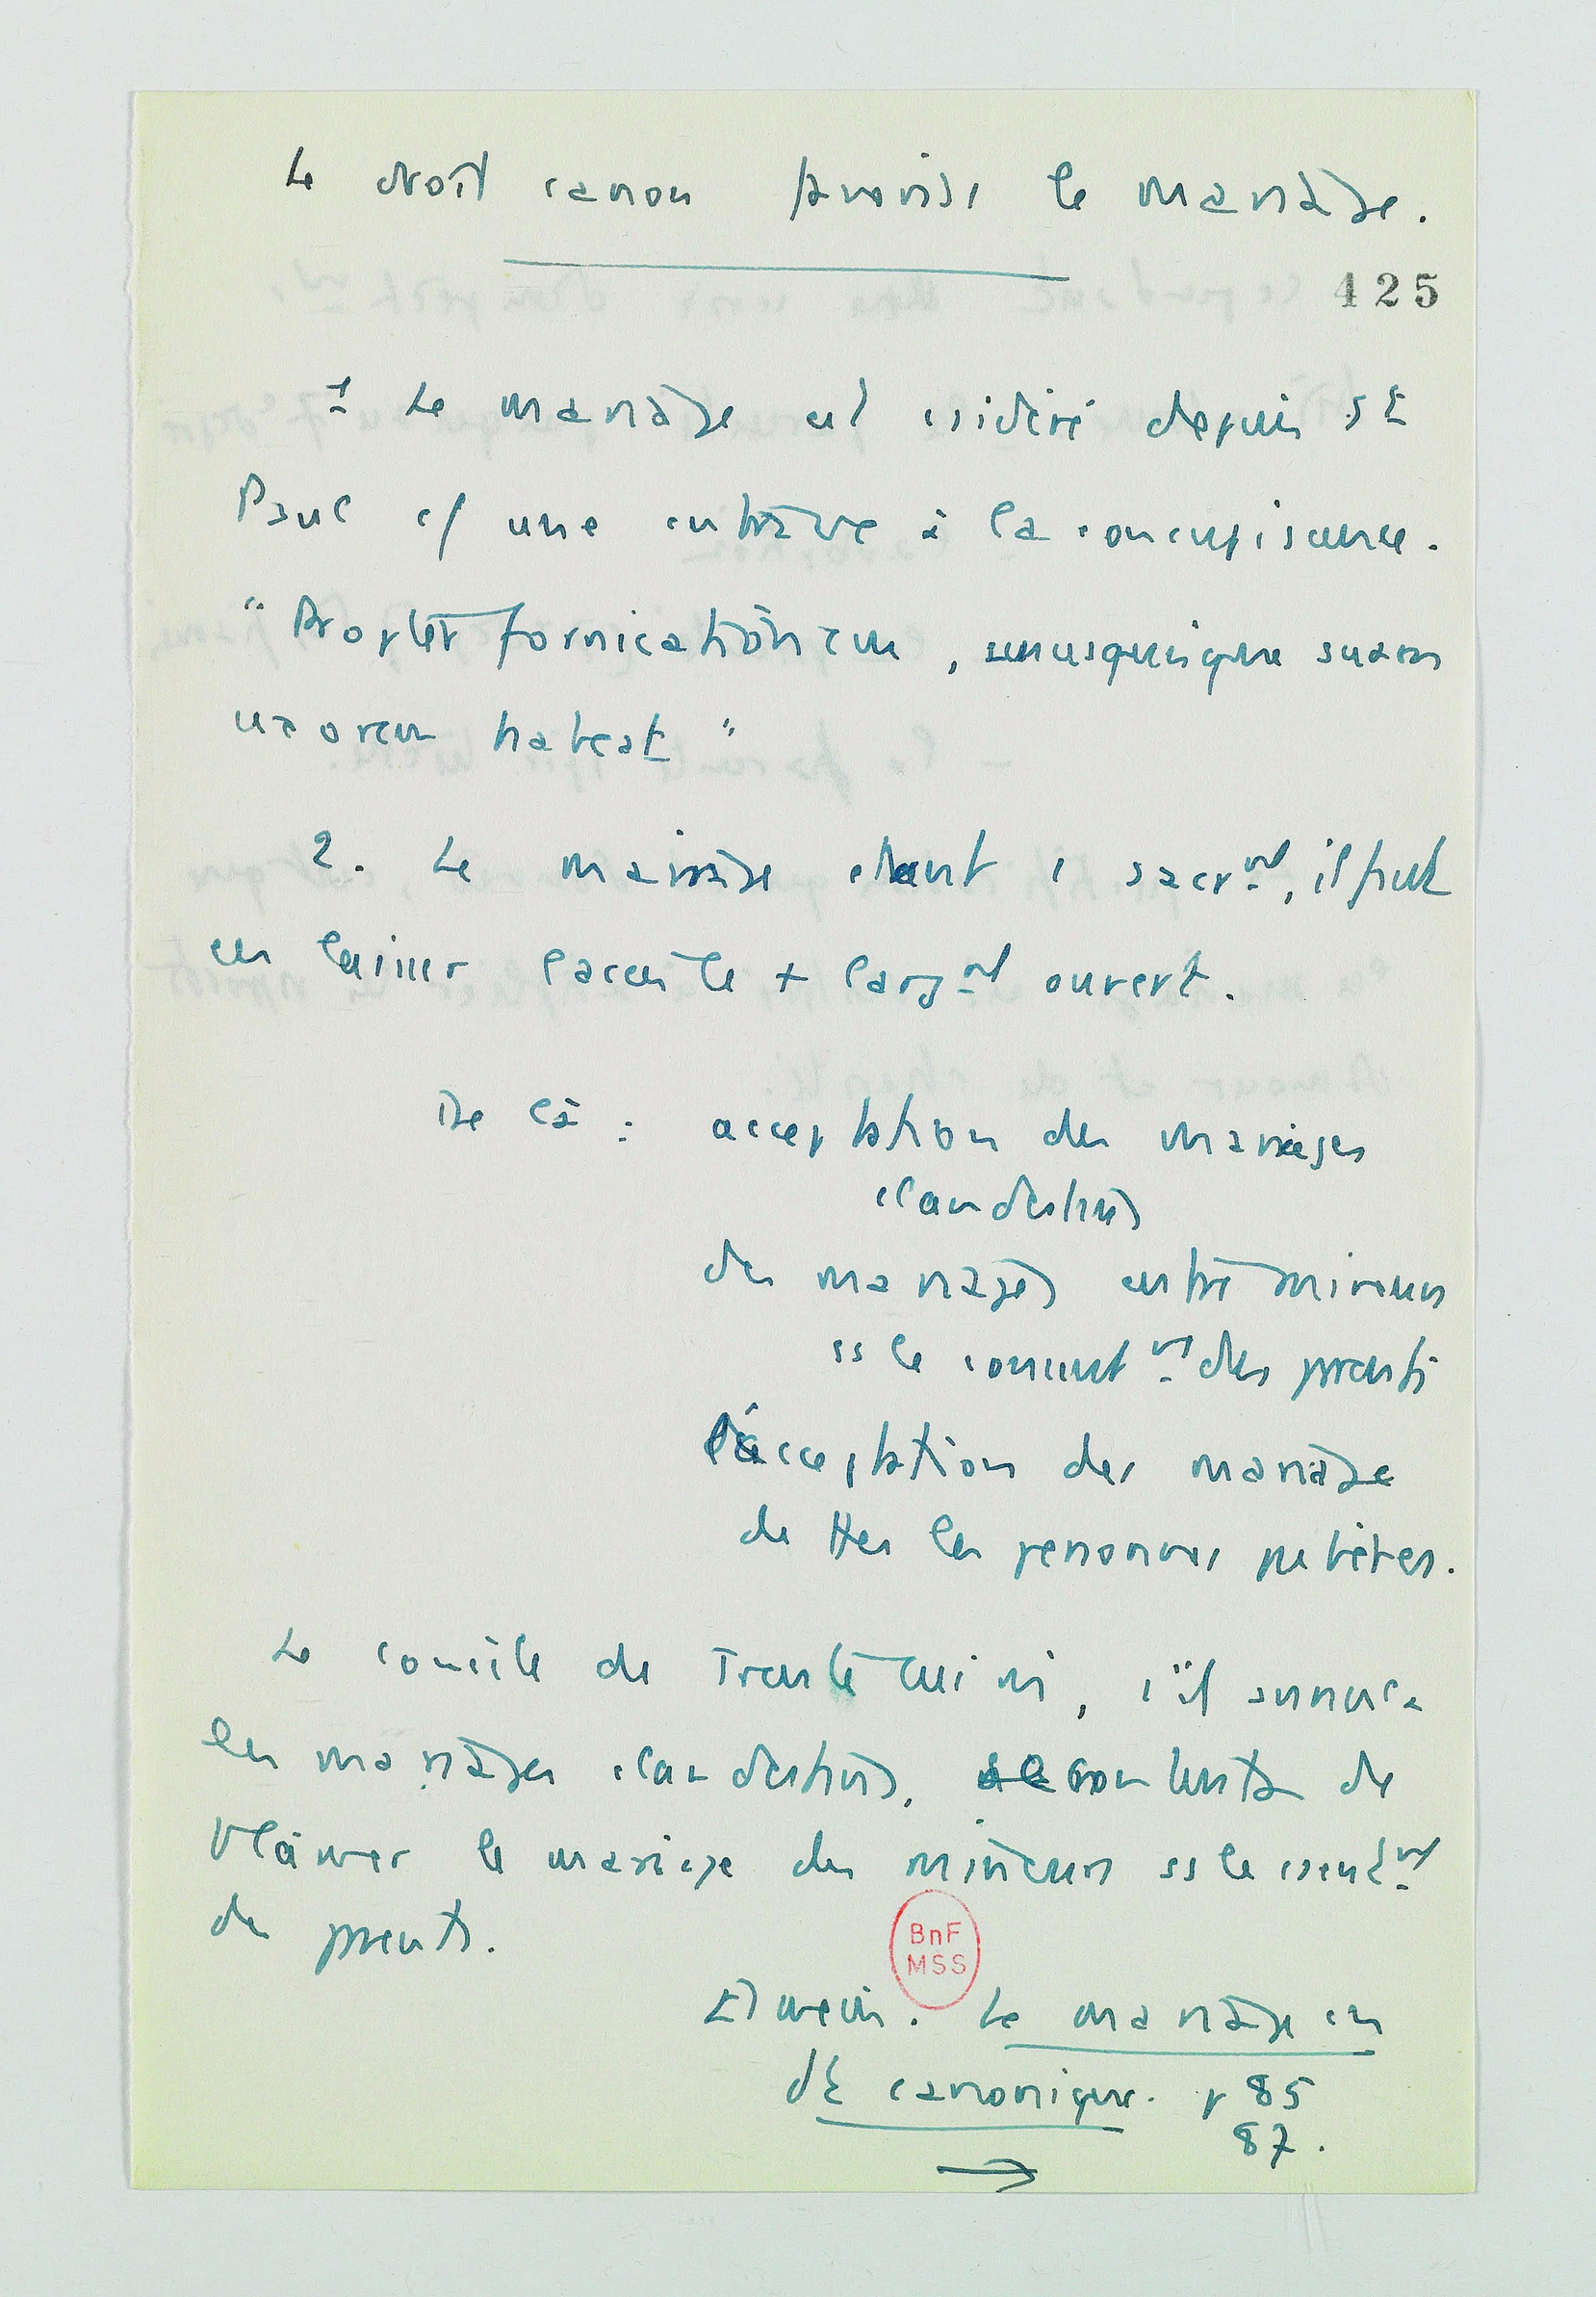 Le droit canon favorise le mariage.
425
1 Le mariage est csidéré depuis St
Paul c/ une entrave à la concupiscence.
"Propter fornicationem, unusquisque suam
uxorem habeat"
2. Le mariage étant 1 sacrnt, il faut
en laisser l'accès le + largnt ouvert.
De là : acceptation des mariages
clandestins
des mariages entre mineurs
ss le consentnt des parents
l'acceptation des mariage
de ttes les personnes pubères.
Le concile de Trente lui mi, s'il annula
les mariages clandestins, se contenta de
blâmer le mariage des mineurs ss le csentnt
de parents.
Esmein. Le mariage en
dt canonique. p 85
87.
→
BnF
MSS